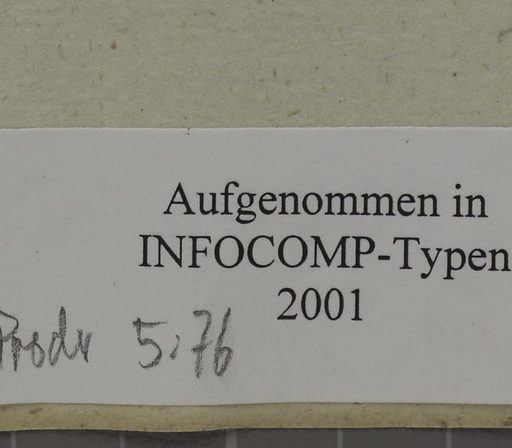 Aufgenommen in
INFOCOMP-Typen
2001
Prodr 5:76